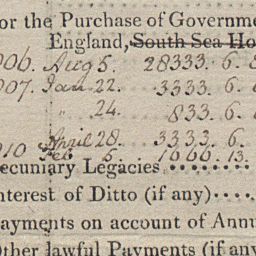 or the Purchase of Governme
England, South Sea Ho
006. Aug 5. 28333. 6. 8
007. Jan. 22. 3333. 6.
" 24. 833. 6.
April 28. 3333. 6.
010 Feb 5. 1666. 13.
ecuniary Legacies
nterest of Ditto (if any)....
ayments on account of Annu
Other lawful Payments (if any